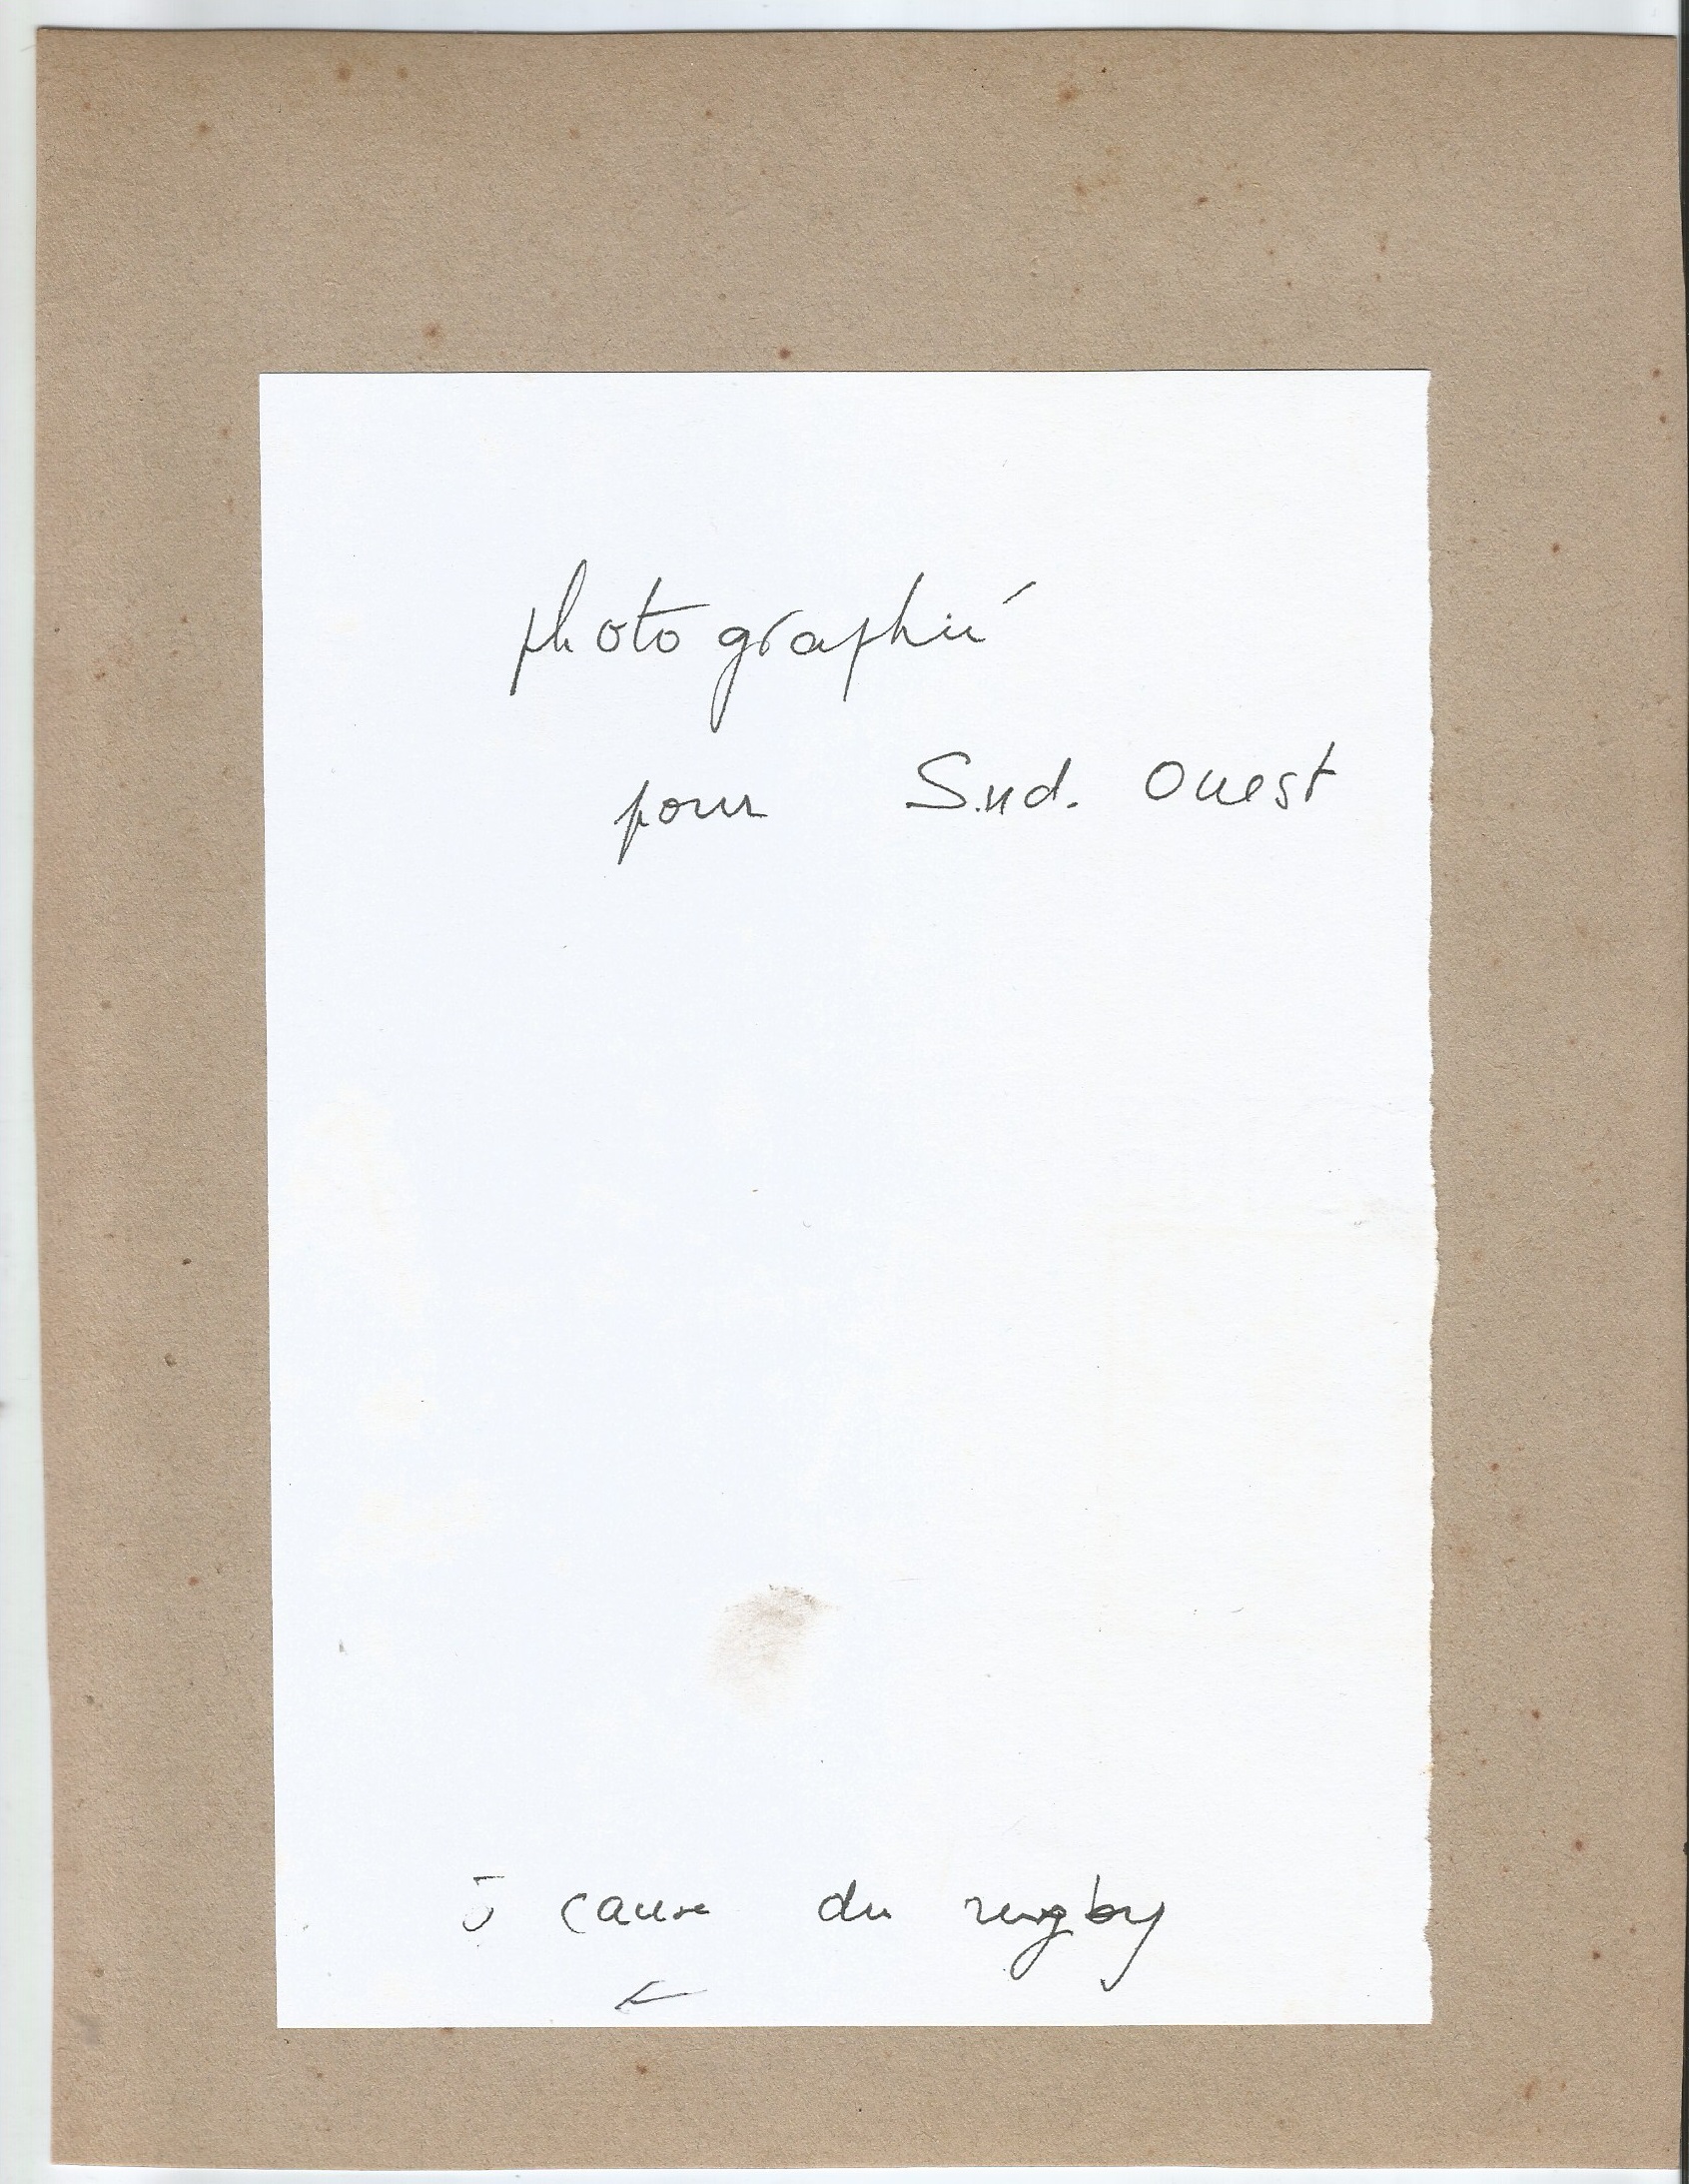 photographié
pour Sud. Ouest
à cause du rugby